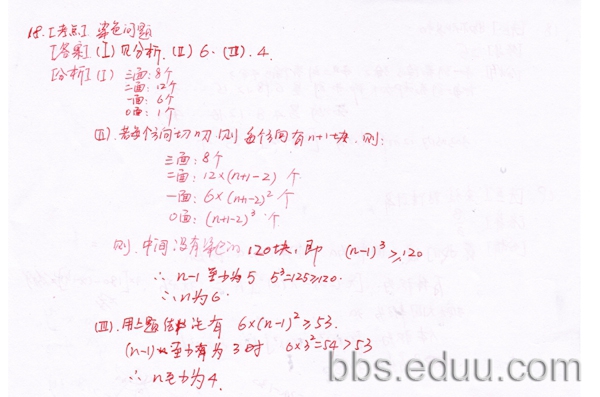 18.[考点].染色问题
[答案](Ⅰ)见分析.(Ⅱ)6.(Ⅲ).4.
[分析](Ⅰ) 三面:8个
二面:12个
一面:6个
0面:1个
(Ⅱ).若每个方向切n刀,则每个方向有n+1块.则:
三面:8个
二面:12×(n+1-2)个
一面:6×(n+1-2)²个
0面:(n+1-2)³个
则.中间没有染色的120块,即 (n-1)³≥120
∴n-1至少为5 5³=125≥120.
∴n为6.
(Ⅲ).用上题结果 有 6×(n-1)²≥53.
(n-1) 至少为3时 6×3²=54>53
∴n至少为4.
bbs.eduu.com